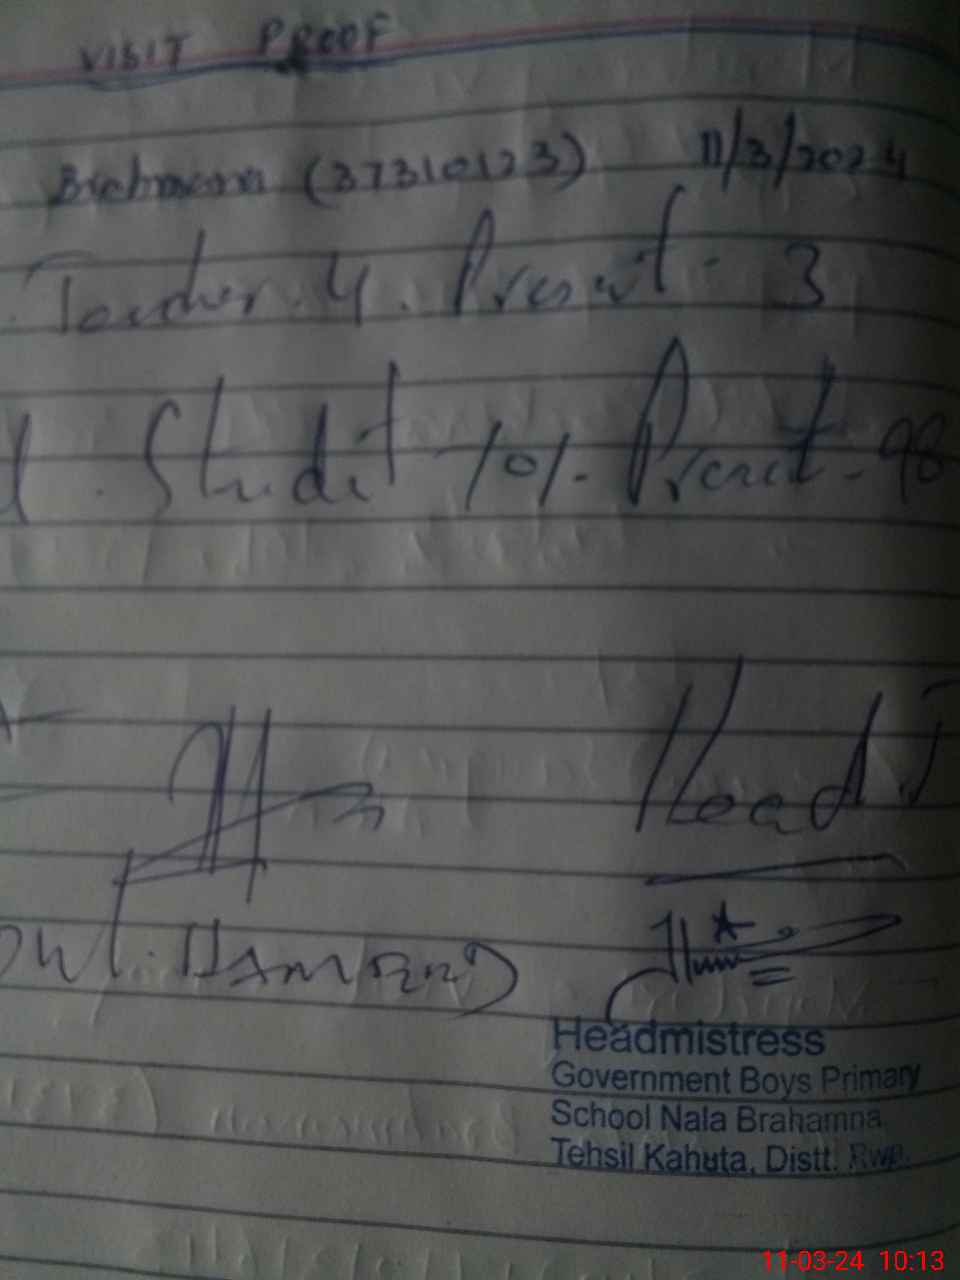 VISIT PROOF
Brehmana (37310123) 11/3/2024
Teacher. 4. Present - 3
Student 101. Present - 98
Head
Headmistress
Government Boys Primary
School Nala Brahamna
Tehsil Kahuta, Distt. Rwp.
11-03-24 10:13